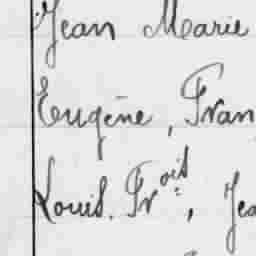 Jean Marie
Eugène, Fran
Louis. Frois, Jea